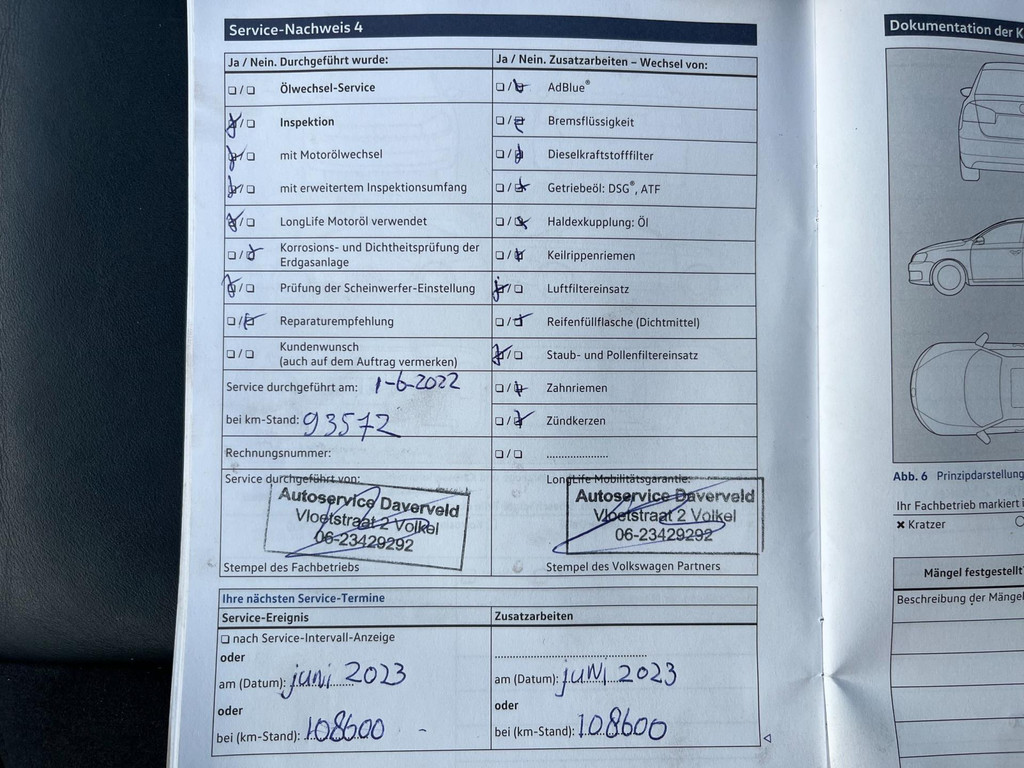 Service-Nachweis 4
Ja / Nein. Durchgeführt wurde:
☐ / ☐ Ölwechsel-Service
☒ / ☐ Inspektion
☒ / ☐ mit Motorölwechsel
☒ / ☐ mit erweitertem Inspektionsumfang
☒ / ☐ LongLife Motoröl verwendet
☐ / ☒ Korrosions- und Dichtheitsprüfung der
Erdgasanlage
☒ / ☐ Prüfung der Scheinwerfer-Einstellung
☐ / ☒ Reparaturempfehlung
☐ / ☐ Kundenwunsch
(auch auf dem Auftrag vermerken)
Service durchgeführt am: 1-6-2022
bei km-Stand: 93572
Rechnungsnummer:
Service durchgeführt von:
Autoservice Daverveld
Vloetstraat 2 Volkel
06-23429292
Stempel des Fachbetriebs
Ja / Nein. Zusatzarbeiten – Wechsel von:
☐ / ☒ AdBlue®
☐ / ☒ Bremsflüssigkeit
☐ / ☒ Dieselkraftstofffilter
☐ / ☒ Getriebeöl: DSG®, ATF
☐ / ☒ Haldexkupplung: Öl
☐ / ☒ Keilrippenriemen
☒ / ☐ Luftfiltereinsatz
☐ / ☒ Reifenfüllflasche (Dichtmittel)
☒ / ☐ Staub- und Pollenfiltereinsatz
☐ / ☒ Zahnriemen
☐ / ☒ Zündkerzen
☐ / ☐ ......................
LongLife Mobilitätsgarantie:
Autoservice Daverveld
Vloetstraat 2 Volkel
06-23429292
Stempel des Volkswagen Partners
Ihre nächsten Service-Termine
Service-Ereignis
☐ nach Service-Intervall-Anzeige
oder
am (Datum): juni 2023
oder
bei (km-Stand): 108600
Zusatzarbeiten
am (Datum): juni 2023
oder
bei (km-Stand): 108600
Dokumentation der K
Abb. 6 Prinzipdarstellung
Ihr Fachbetrieb markiert
✕ Kratzer
Mängel festgestellt
Beschreibung der Mängel